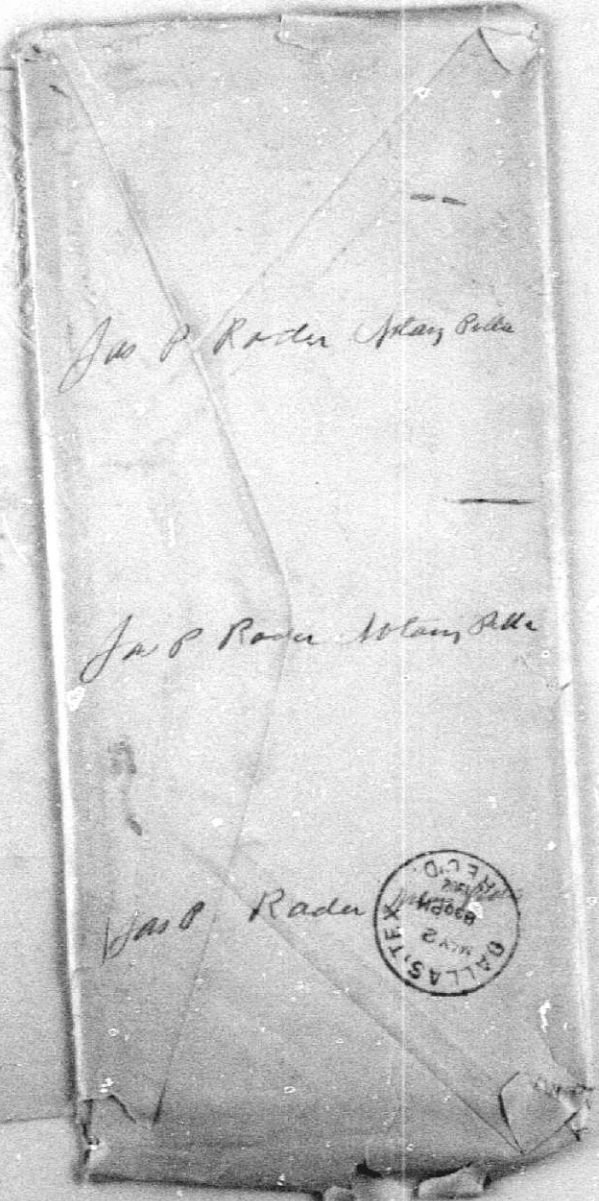 Jas P Rader Notary Public
Jas P Rader Notary Public
Jas P. Rader
DALLAS, TEX.
MAY 2
830PM
REC'D.